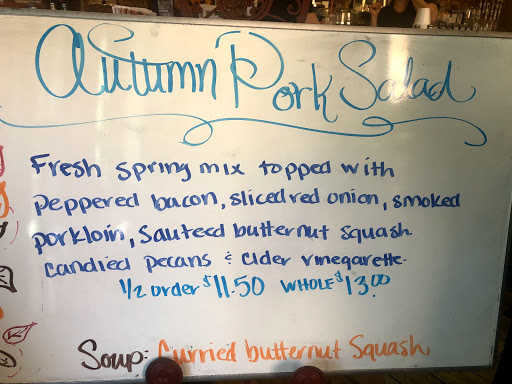 Autumn Pork Salad
Fresh spring mix topped with
peppered bacon, sliced red onion, smoked
porkloin, Sauteed butternut squash
candied pecans & cider vinegarette.
1/2 order $11.50 WHOLE $13.00
Soup: Curried butternut Squash